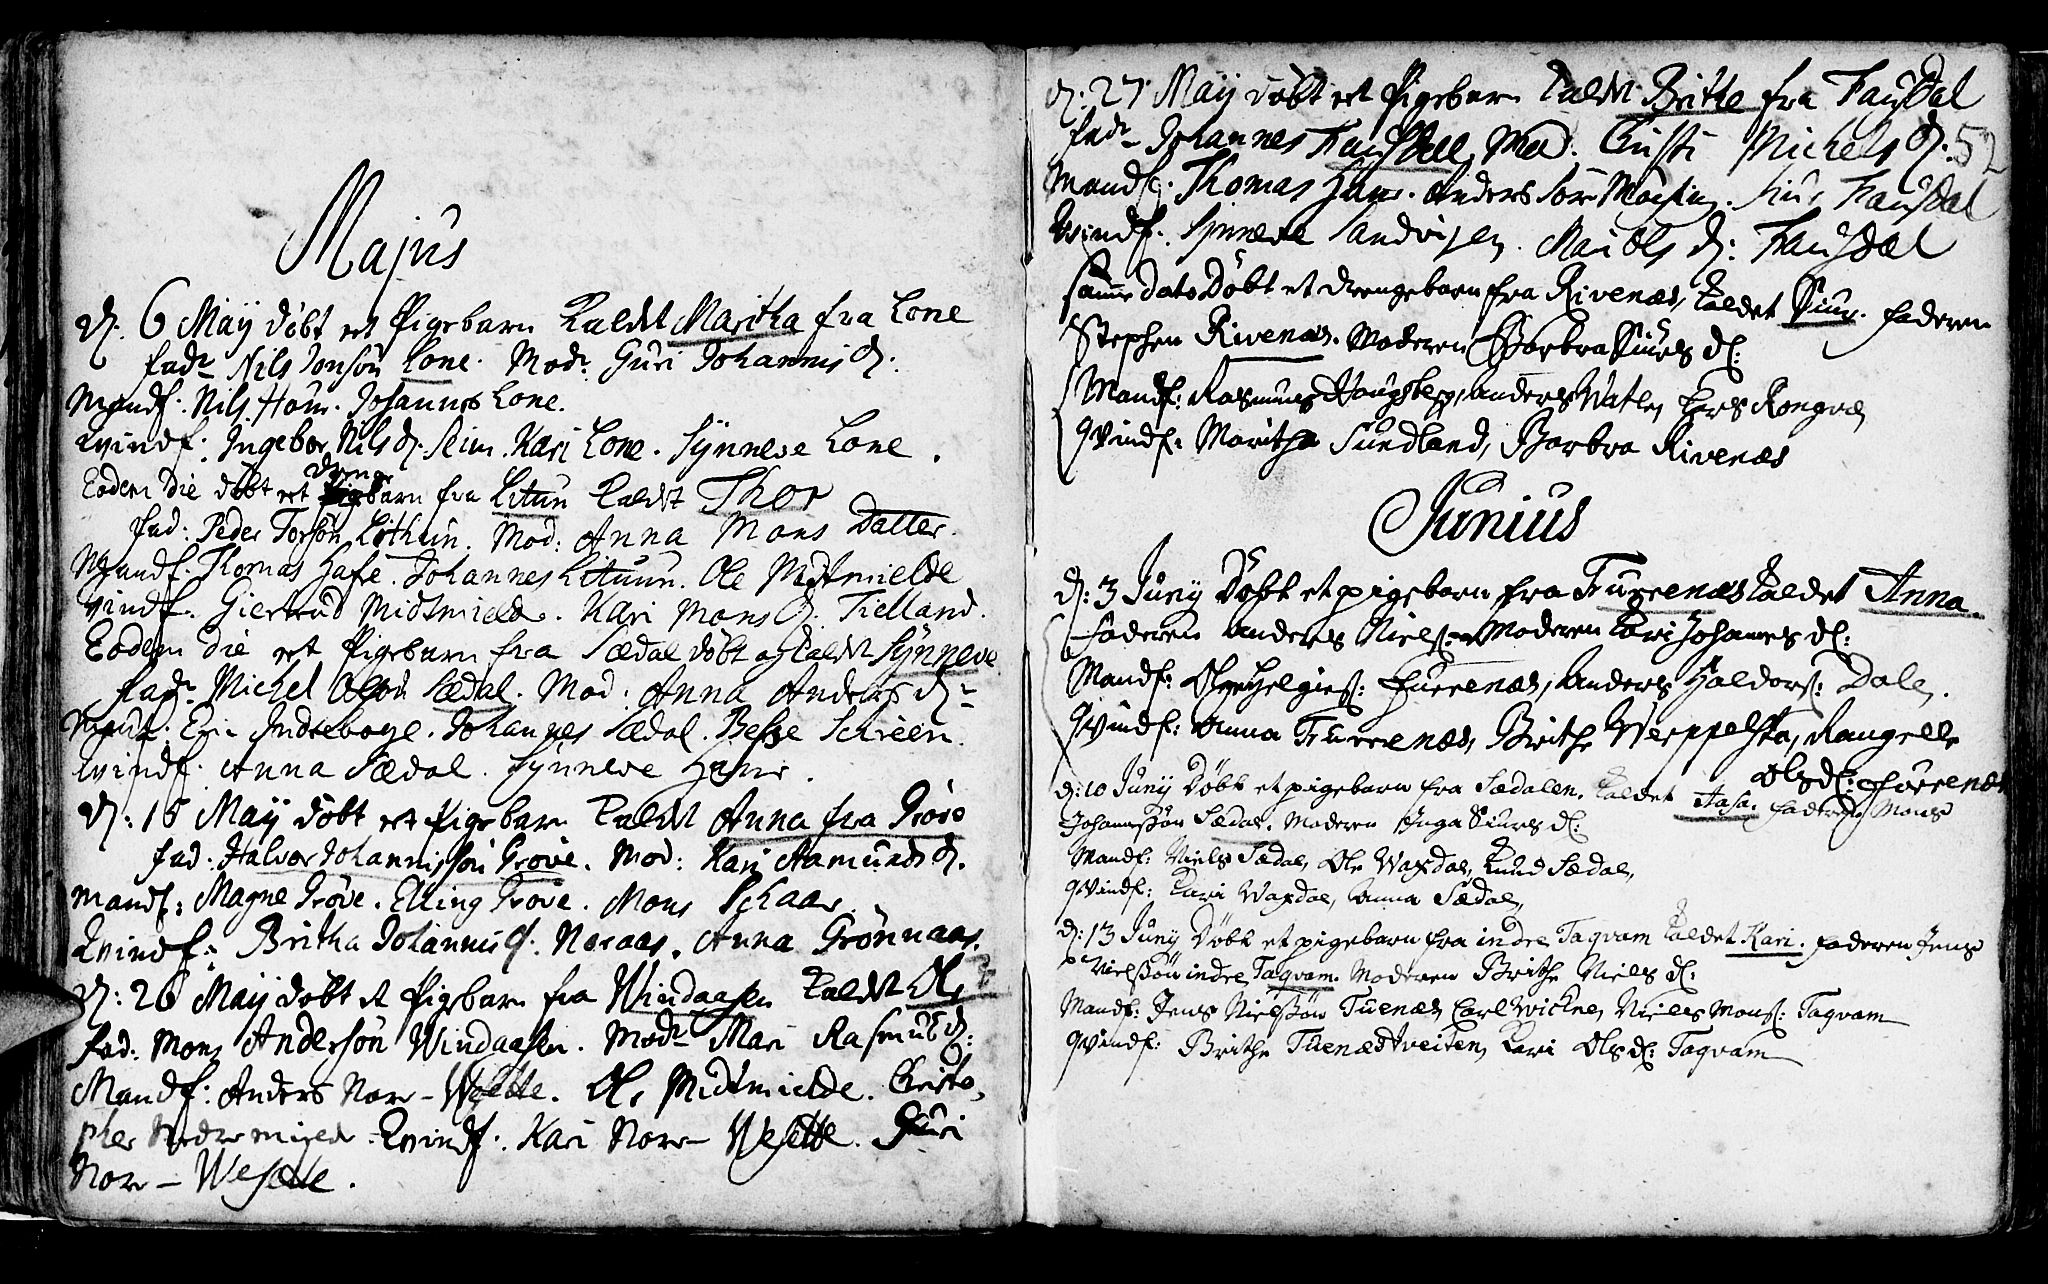 Majus
d. 6 Maÿ døbt et Pigebarn Kaldt Maritha fra Lone
fadr Nils Jonsøn Lone. Modr Guri Johannis d.
Mandf. Nils Houe. Johannes Lone.
Kvindf. Ingebor Nils d. Seim. Kari Lone. Sÿnneve Lone.
Eodem die døbt et drengebarn fra Litun Kaldt Thor
fad: Peder Torsøn Lithun. Mod: Anna Mons Datter.
Mandf. Thomas Hafe. Johannes Lituun. Ole Midtmielde
Kvindf. Giertrud Midtmielde. Kari Mons d. Tielland.
Eodem die et Pigebarn fra Sædal døbt og Kaldt Sÿnneve
fadr Michel Olsøn Sædal. Mod: Anna Anders dr
Mand: Eric Indrebøge. Johannes Sædal. Besse Schreen.
Kvindf. Anna Sædal. Sÿnneve
d: 16 Maÿ døbt et Pigebarn Kaldt Anna fra Grove
fad: Halvor Johannissøn Grove. Mod: Kari Aamunds d.
Mandf: Magne Grøve. Elling Grove. Mons Schaar
Kvindf: Britha Johannis d. Noraas. Anna Grønnaas.
d: 26 Maÿ døbt et Pigebarn fra Windaasen Kaldt Ole
fad: Mons Andersøn Windaasen. Modr Mari Rasmus d:
Mandf: Anders Nore-Wesette. Ole Midtmielde. Christo-
pher Nedremiede. Kvindf: Kari Nore-Wesette. Guri
Nore-Wesette.
d: 27 Maÿ døbt et Pigebarn Kaldt Brithe fra Fausdal
fadr Johannes Fausdall, Mod. Kristi Michels d.
52
Mandf: Thomas Anders Siur Fausdal
Kvindf. Sÿnneve Sandvigen. Mari Ols d: Fausdal
Samme dato Døbt et drengebarn fra Rivenæs, kaldet Siur. faderen
Stephen Rivenæs. Moderen Barbra Siurs d:
Mandf: Rasmus Hougsberg, anders Watle, Lars Rongve,
Qvindf: Maritha Sundland, Barbra Rivenæs
Junius
d: 3 Junÿ Døbt et pigebarn fra Furrenæs kaldet Anna.
faderen anders Niels: Moderen Kari Johannes d:
Mandf: Ole Helgies: Furrenæs, anders Haldors: Dale,
Qvindf: anna Furrenæs, Brithe Weppelsta, Rangelle
Olsd: Furrenæs
d: 10 Junÿ Døbt et pigebarn fra Sædalen, kaldet Aasa. faderen Mons
Johannessøn Sædal. Moderen Inga Siurs d:
Mandf: Niels Sædal, Ole Waxdal, Knud Sædal,
Qvindf: Kari Waxdal, anna Sædal,
d: 13 Junÿ Døbt et pigebarn fra indre Tagvam kaldet Kari. faderen Jens
Nielssøn indre Tagvam. Moderen Brithe Niels d:
Mandf: Jens Nielssøn Tuenæs, Carl Wickne, Niels Mons: Tagvam
Qvindf: Brithe Tuenædtveiten, Kari Ols d: Tagvam